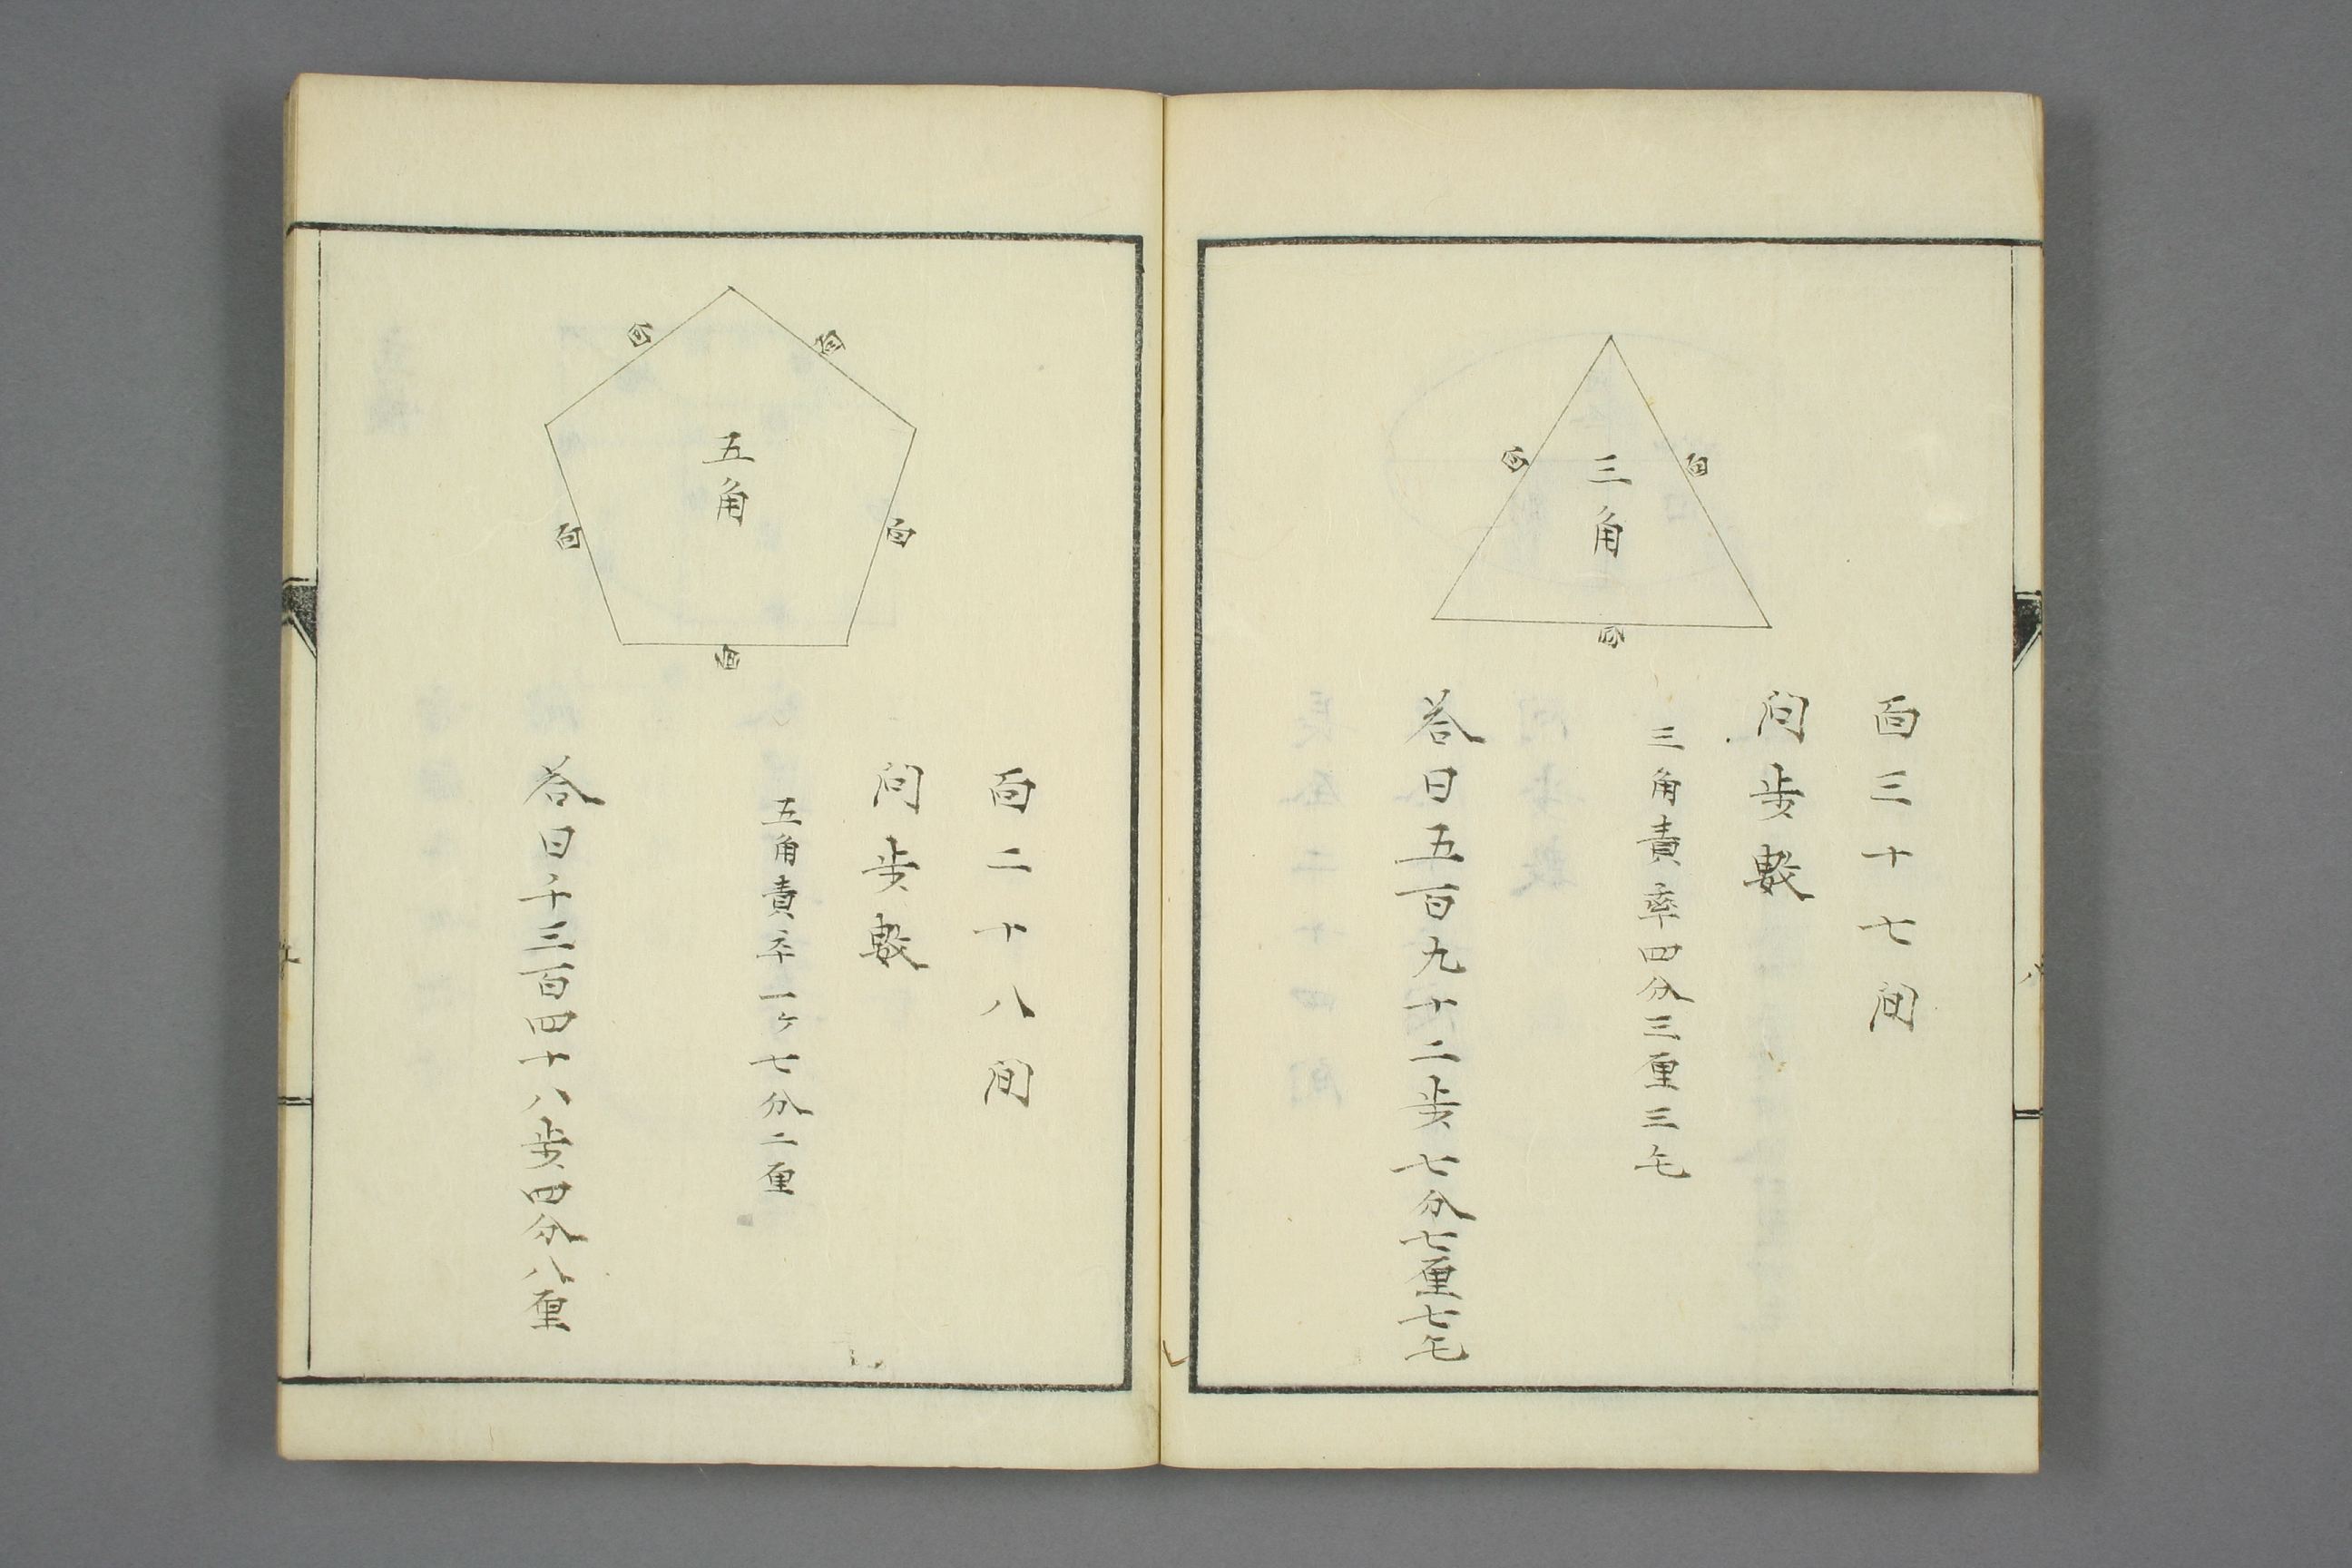 面
面
三角
面
面三十七间
问步數
三角責率四分三厘三毛
荅曰五百九十二步七分七厘七毛
面
面
五角
面
面
面
面二十八间
问步數
五角責率一ケ七分二厘
荅曰千三百四十八步四分八厘